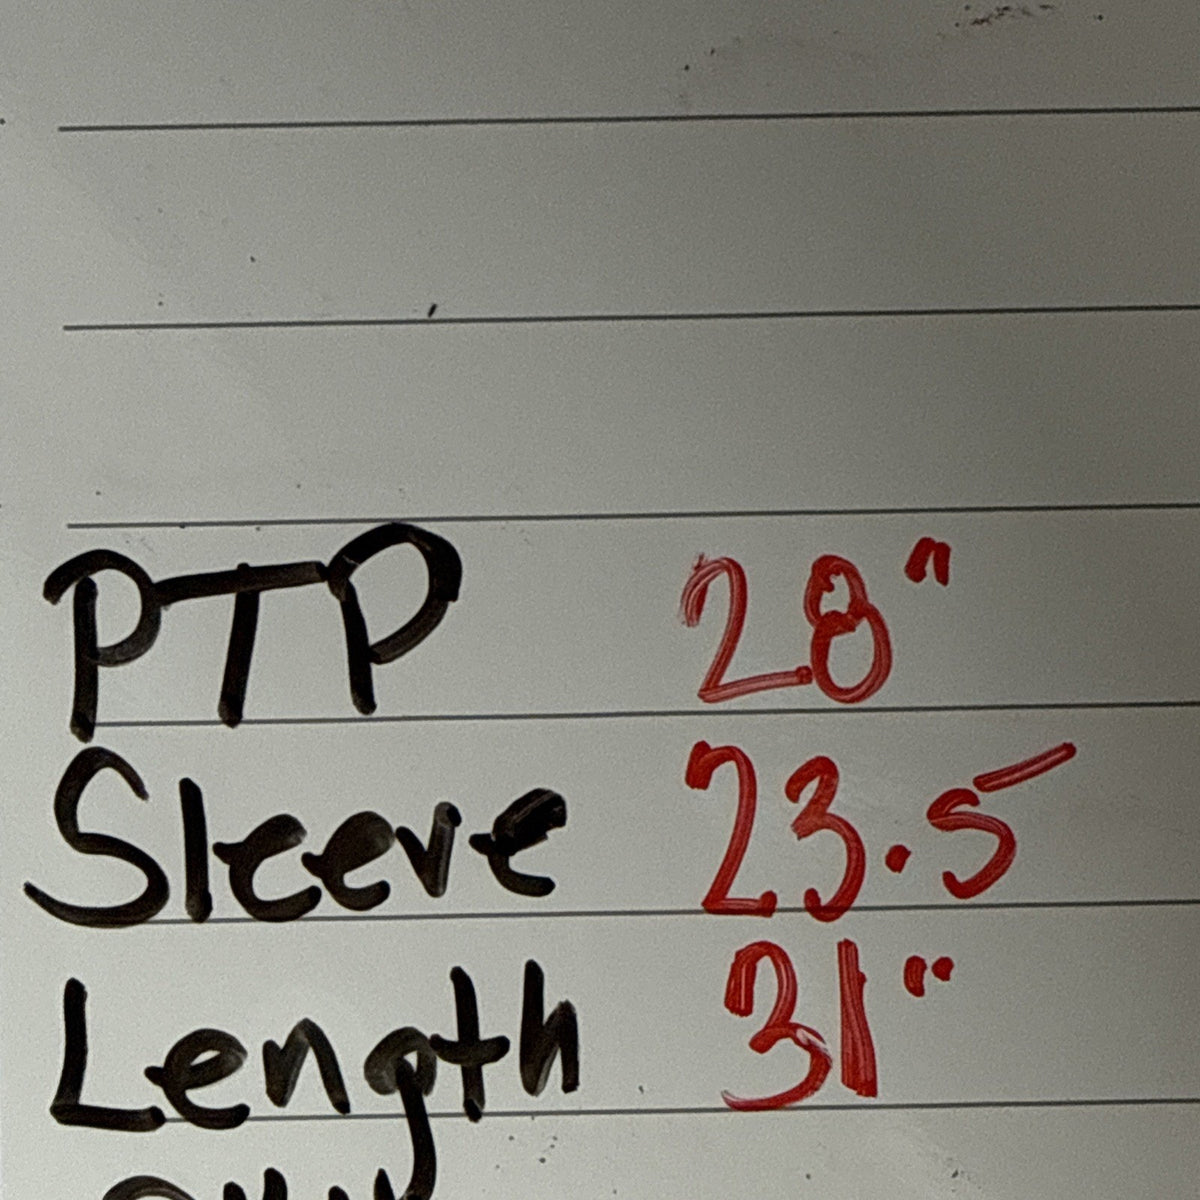 PTP 28"
Sleeve 23.5
Length 31"